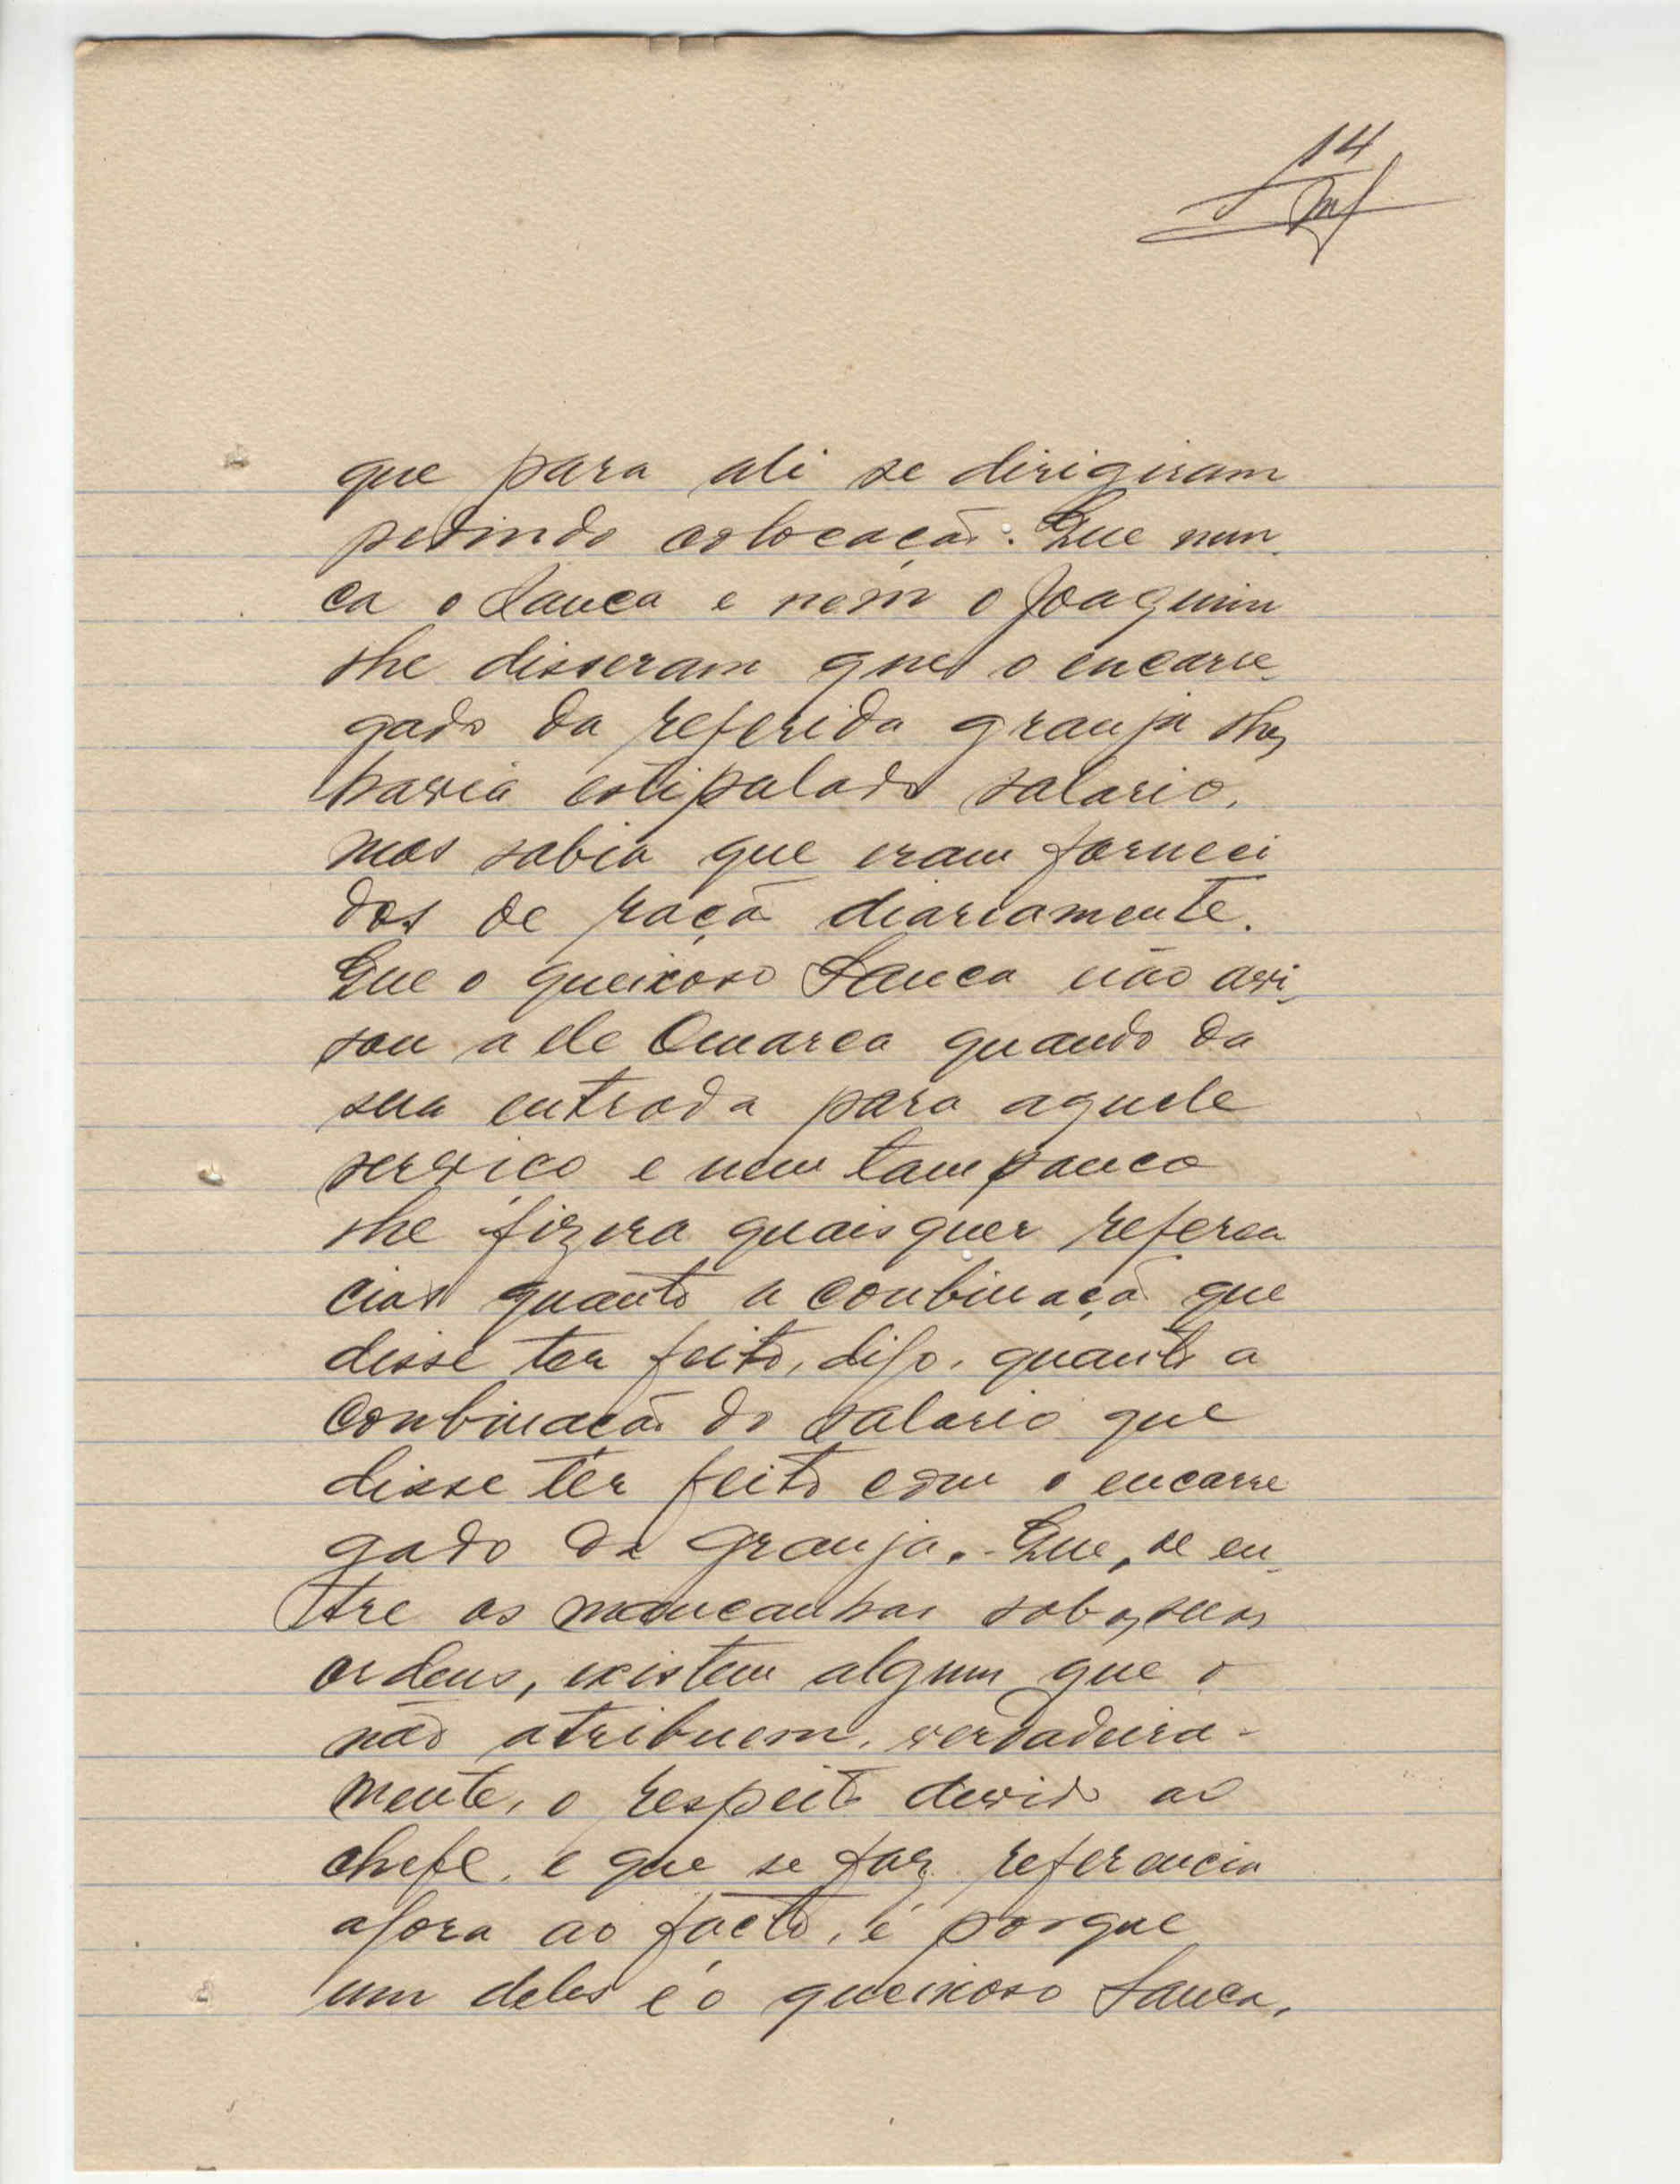 14
que para ali se dirigiram
pedindo colocação. Que nun-
ca o Sanca e nem o Joaquim
lhe disseram que o encarre-
gado da referida granja lhes
havia estipulado salario,
mas sabia que eram forneci
dos de ração diariamente.
Que o queixoso Sanca não avi-
sou a ele Omarca quando da
sua entrada para aquele
serviço e nem tampouco
lhe fizera quaisquer referen
cias quanto a conbinação que
disse ter feito, digo, quanto a
conbinação do salario que
disse ter feito com o encarre
gado da granja. Que, se en-
tre os mancanhas sob as suas
ordens, existem algum que o
não atribuem, verdadeira-
mente, o respeito devido ao
chefe, e que se faz referencia
agora ao facto, é porque
um deles é o queixoso Sanca,